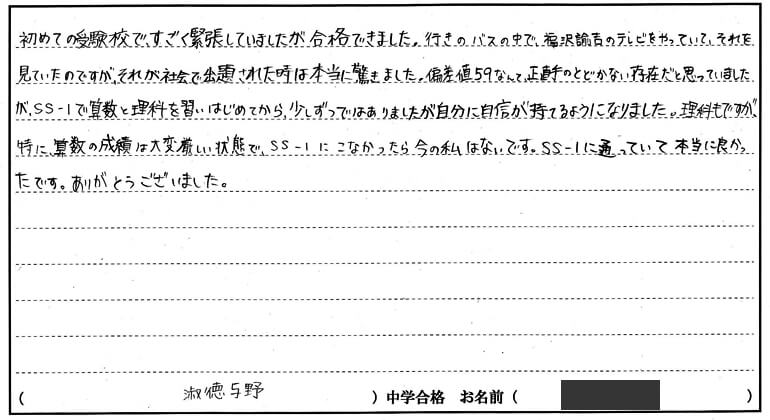 初めての受験校で、すごく緊張していましたが合格できました。行きのバスの中で、福沢諭吉のテレビをやっていて、それを
見ていたのですが、それが社会で出題された時は本当に驚きました。偏差値59なんて、正直手のとどかない存在だと思っていました
が、SS-1で算数と理科を習いはじめてから、少しずつではありましたが自分に自信が持てるようになりました。理科もですが、
特に、算数の成績は大変厳しい状態で、SS-1にこなかったら今の私はないです。SS-1に通っていて本当に良かっ
たです。ありがとうございました。
( 淑徳与野 ) 中学合格 お名前 ( )